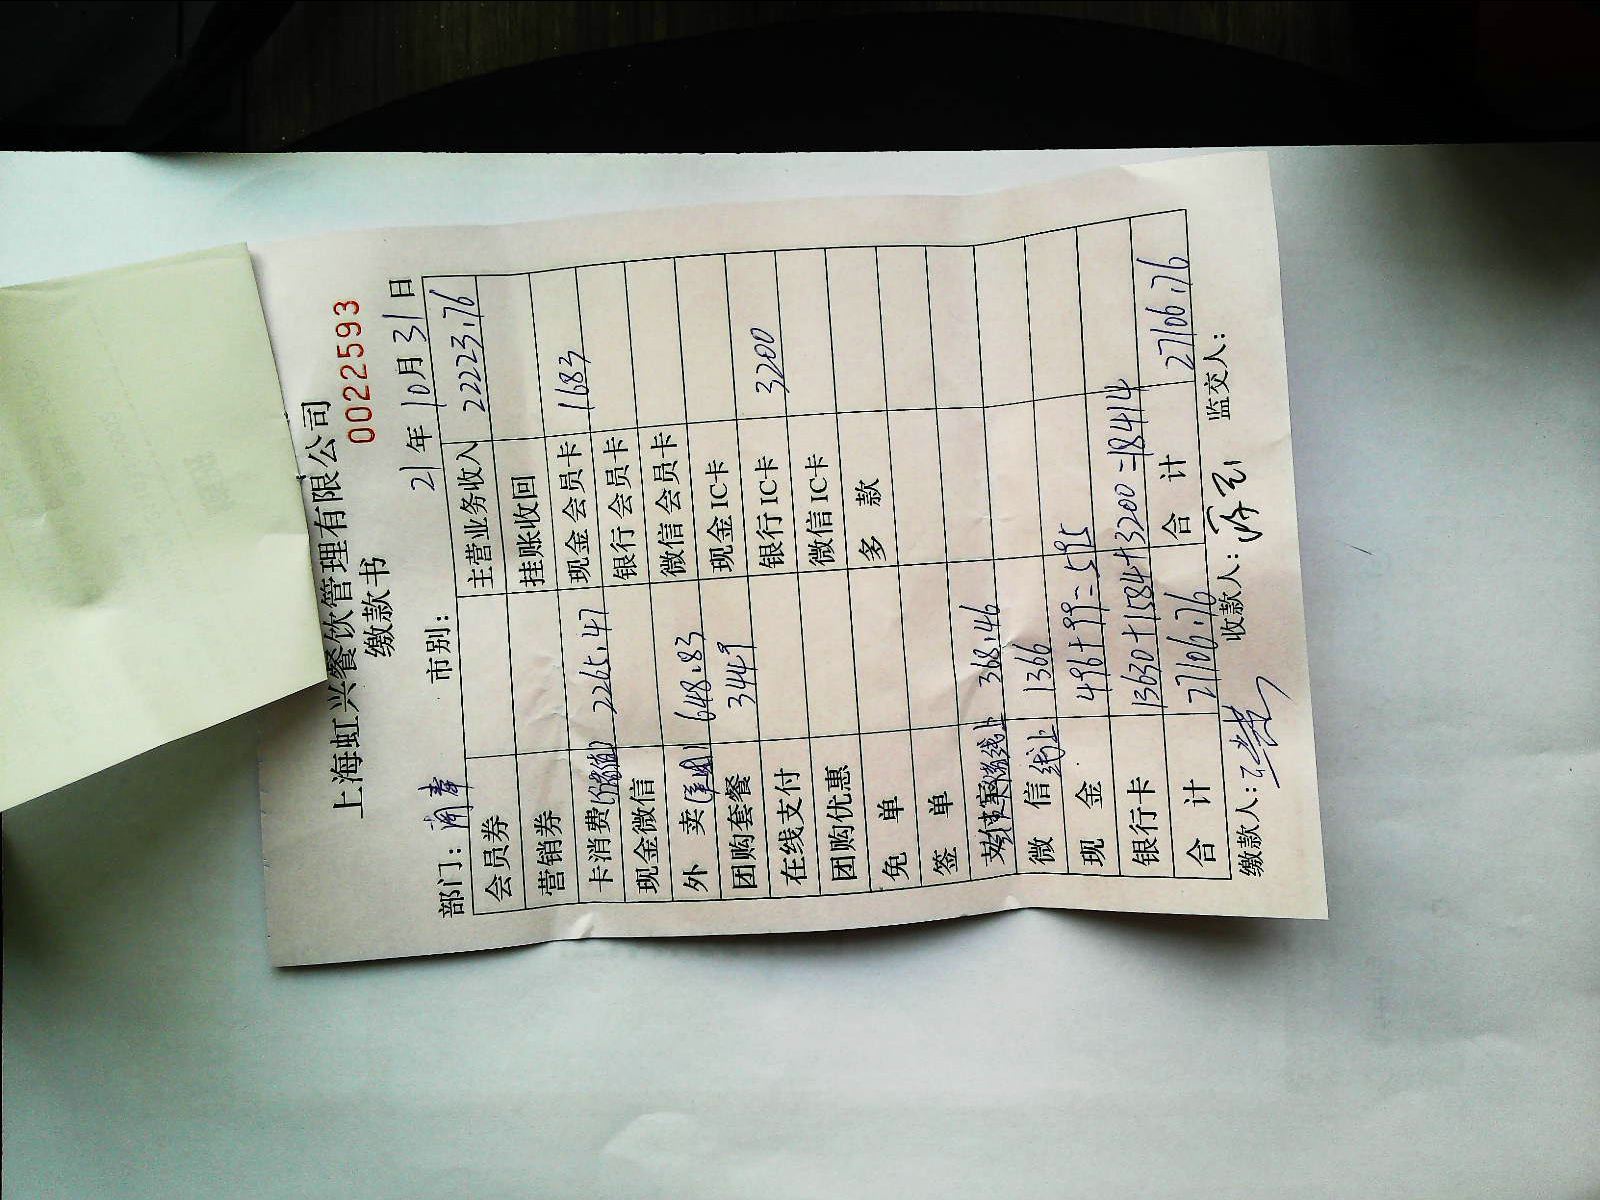 上海虹兴餐饮管理有限公司
缴款书 0022593
部门: 市别: 21年10月31日
会员券 主营业务收入 22223.76
营销券 挂账收回
卡消费 2265.47 现金会员卡 1683
现金微信 银行会员卡
外卖(美团) 648.83 微信会员卡
团购套餐 3449 现金IC卡
在线支付 银行IC卡 3200
团购优惠 微信IC卡
免单 多款
签单
368.46
微信线上 1366
现金 496+99=595
银行卡 13630+1584+3200=18414
合计 27106.76 合计 27106.76
缴款人: 收款人: 监交人: